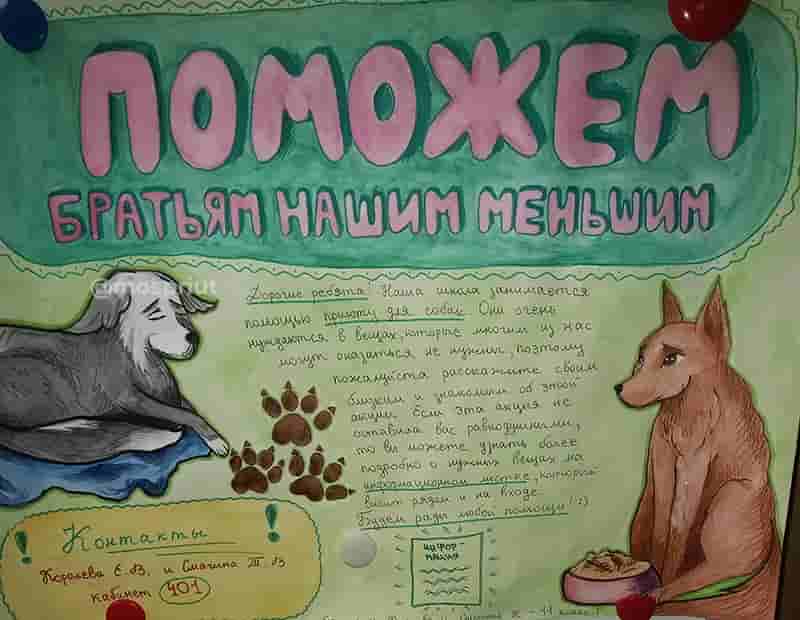 ПОМОЖЕМ
БРАТЬЯМ НАШИМ МЕНЬШИМ
@mospriut
Дорогие ребята! Наша школа занимается
помощью приюту для собак. Они очень
нуждаются в вещах, которые многим из нас
могут оказаться не нужны, поэтому
пожалуйста расскажите своим
близким и знакомым об этой
акции. Если эта акция не
оставила вас равнодушными,
то вы можете узнать более
подробно о нужных вещах на
информационном листке, который
висит рядом и на входе.
Будем рады любой помощи!
инфор-
мация
Контакты
Королева Е.В. и Смагина В
кабинет 401
11 класс